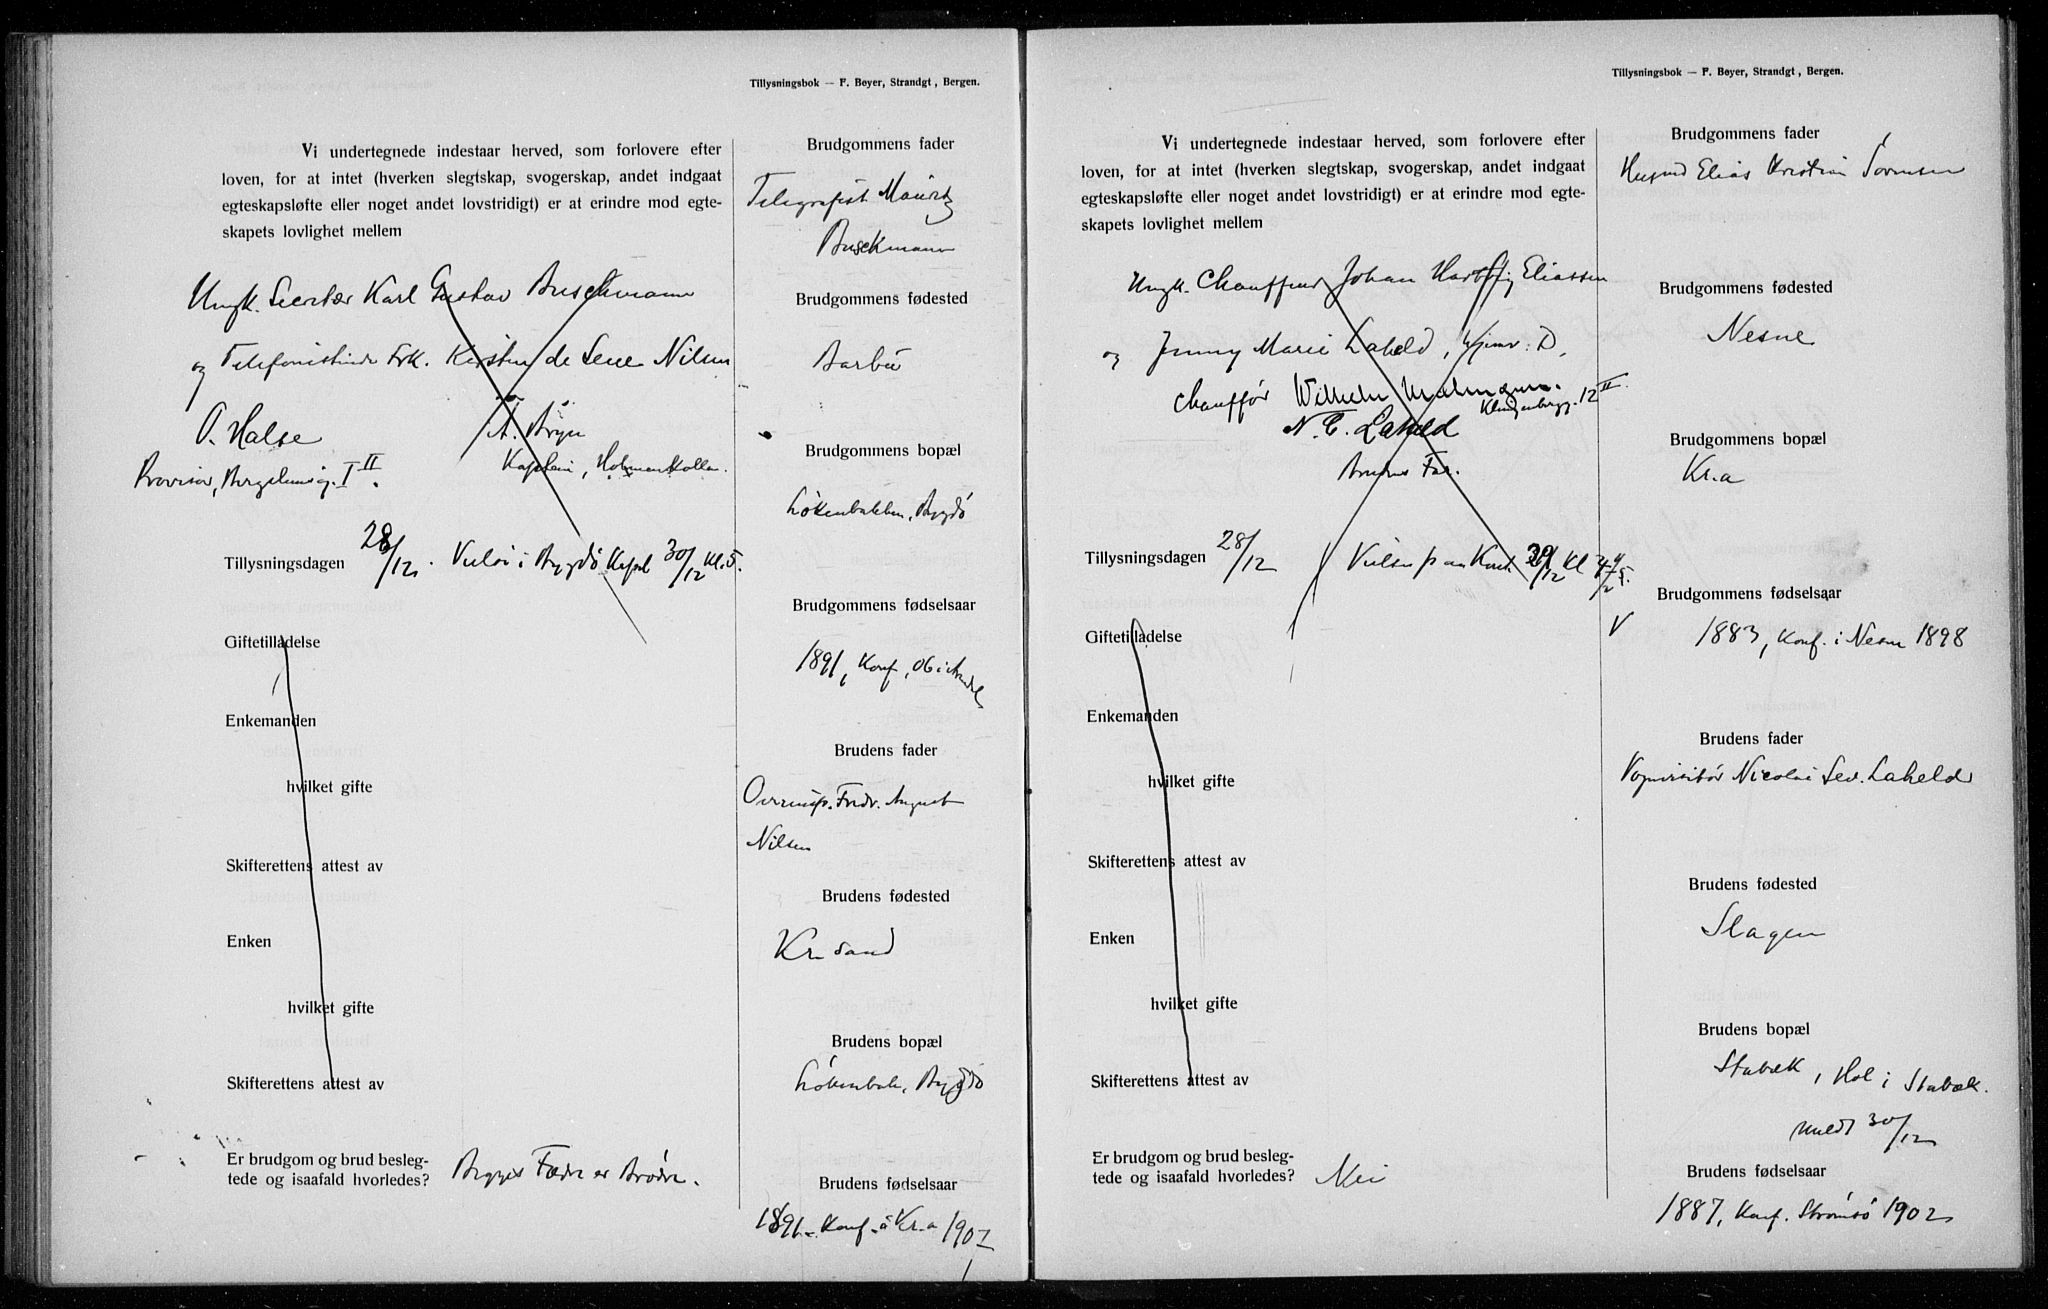 Tillysningsbok — F. Bøyer, Strandgt, Bergen.
Vi undertegnede indestaar herved, som forlovere efter
loven, for at intet (hverken slegtskap, svogerskap, andet indgaat
egteskapsløfte eller noget andet lovstridigt) er at erindre mod egte-
skapets lovlighet mellem
Ungk. Secretær Karl Gustav Buschmann
og Telefonistinde Frk. Kirsten de Nilsen
O. Halse
A. Bryn
Kaptein, Holmenkollen.
Tillysningsdagen 28/12. Vielse i Bygdø Kapel 30/12 Kl. 5.
Giftetilladelse
Enkemanden
hvilket gifte
Skifterettens attest av
Enken
hvilket gifte
Skifterettens attest av
Er brudgom og brud besleg-
tede og isaafald hvorledes? Begges Fædre er Brødre.
Brudgommens fader
Telegrafist Mauritz
Buschmann
Brudgommens fødested
Barbu
Brudgommens bopæl
Løkenbakken, Bygdø
Brudgommens fødselsaar
1891, Konf. 06 i Arendal
Brudens fader
Fredr. August
Nilsen
Brudens fødested
Kr.sand
Brudens bopæl
Løkenbak, Bygdø
Brudens fødselsaar
1891. Konf. i Kr.a 1907
Tillysningsbok — F. Bøyer, Strandgt, Bergen.
Vi undertegnede indestaar herved, som forlovere efter
loven, for at intet (hverken slegtskap, svogerskap, andet indgaat
egteskapsløfte eller noget andet lovstridigt) er at erindre mod egte-
skapets lovlighet mellem
Ungk. Chauffeur Johan Hartvig Eliassen
og Jenny Marie Laheld, hjemv. D.
Chauffør Wilhelm Malmgren. Klingenbergg. 12 II.
N. C. Laheld
Brudens Far.
Tillysningsdagen 28/12 Vielse paa Kont. /12 Kl
Giftetilladelse
Enkemanden
hvilket gifte
Skifterettens attest av
Enken
hvilket gifte
Skifterettens attest av
Er brudgom og brud besleg-
tede og isaafald hvorledes? Nei
Brudgommens fader
Husmd Elias Kristian Sørensen
Brudgommens fødested
Nesne
Brudgommens bopæl
Kr.a
Brudgommens fødselsaar
V 1883, Konf. i Nesne 1898
Brudens fader
Vognvisitør Nicolai Sev. Laheld
Brudens fødested
Slagen
Brudens bopæl
Stabæk, Hol i Stabæk.
meldt 30/12
Brudens fødselsaar
1887, Konf. Strømsø 1902